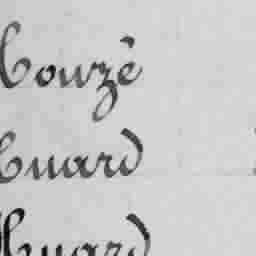 Houzé
Huard
Huard